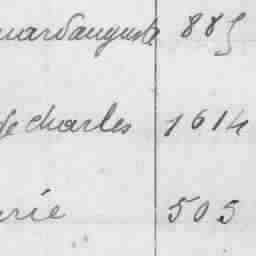 ouard auguste 885
de charles 1614
rie 505